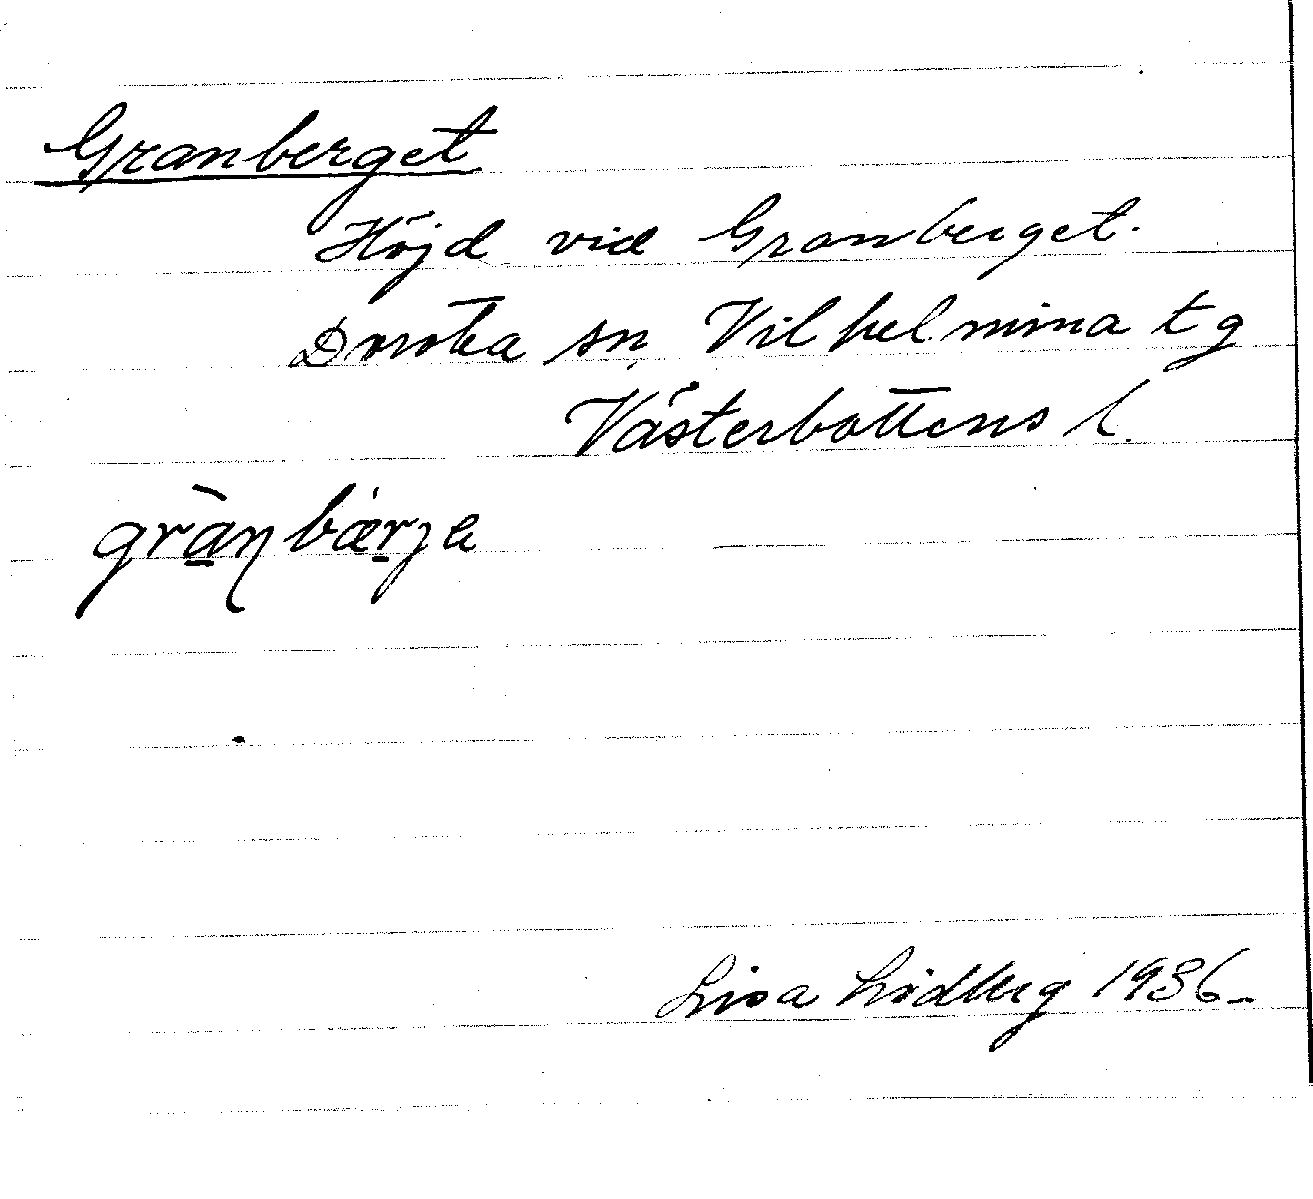 Granberget
Höjd vid Granberget.
Dorotea sn, Vilhelmina tg
Västerbottens l.
grànbærje
Lisa Lidberg 1936-